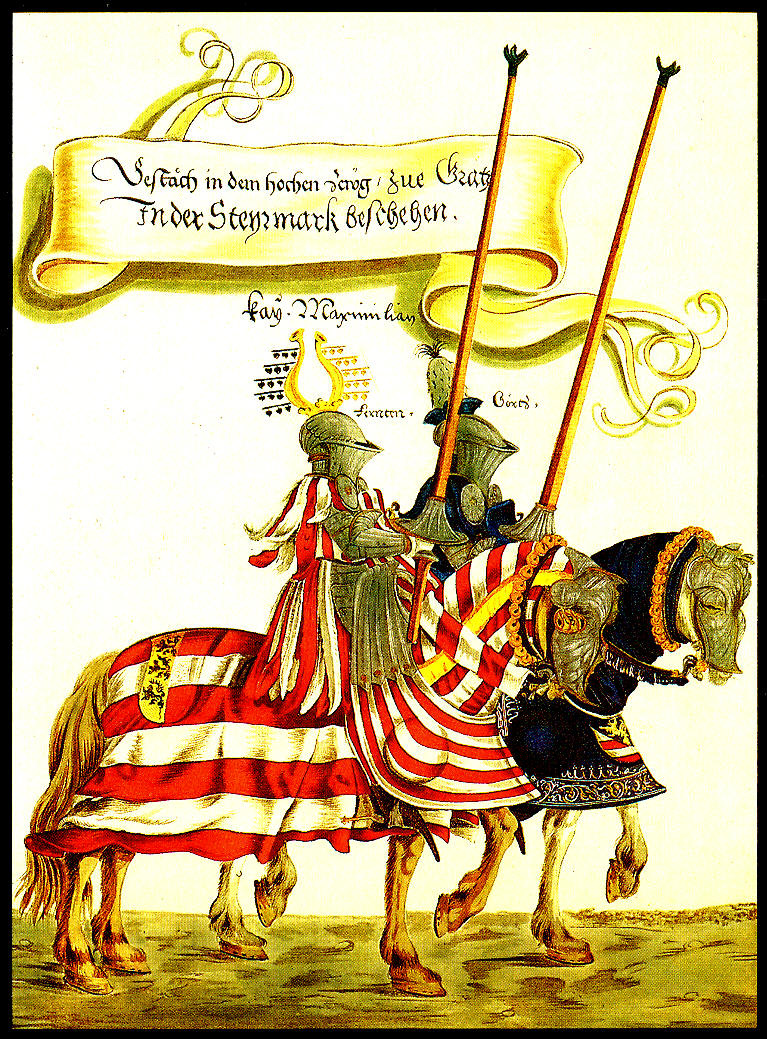 Gestäch in dem hochen Zeüg, zue Gratz
In der Steyrmark beschehen.
Kay. Maximilian
Görtz.